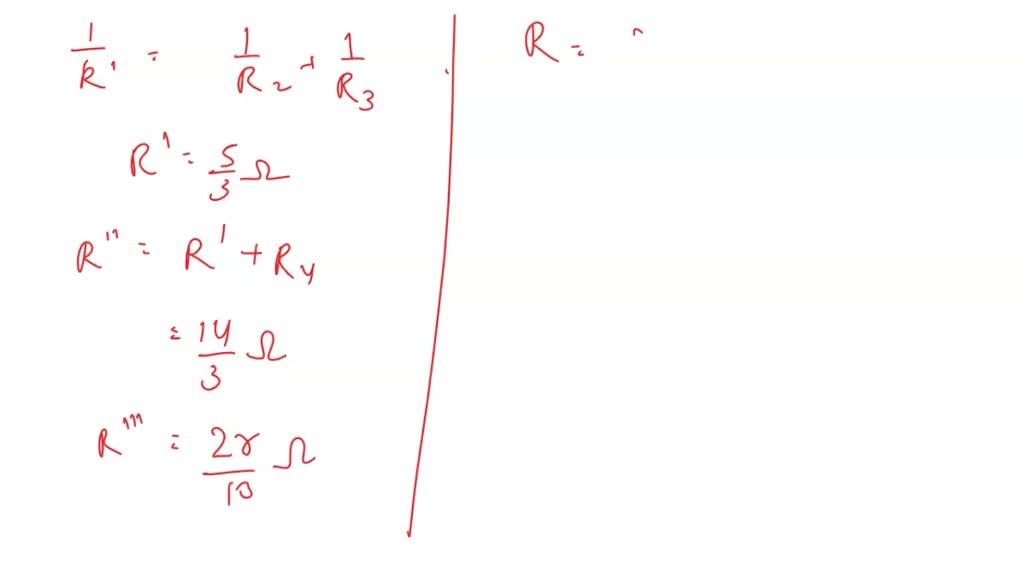 1/R' = 1/R2 + 1/R3
R' = 5/3 Ω
R'' = R' + R4
= 14/3 Ω
R''' = 28/13 Ω
R =